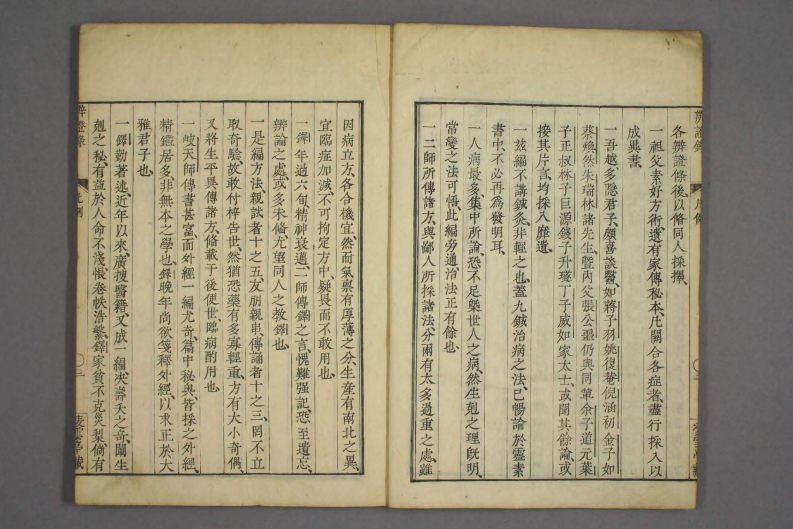 各辨證條後以俻同人採擇
一祖父素好方術遺有家傳秘本凡關合各症者盡行採入以
成異書
一吾越多隱君子頗喜談醫如蔣子羽姚復菴倪涵初金子如
蔡煥然朱瑞林諸先生暨內父張公噩仍與同輩余子道元葉
子正叔林子巨源錢子升瑾丁子威如家太士或聞其餘論或
接其片言均採入靡遺
一玆編不講鍼灸非輕之也蓋九鍼治病之法已暢論於靈素
書中不必再為發明耳
一人病最多集中所論恐不足槩世人之病然生剋之理旣明
常變之法可悟此編旁通治法正有餘也
一二師所傳諸方與鄙人所採諸法分兩有太多過重之處雖
因病立方各合機宜然而氣禀有厚薄之分生産有南北之異
宜臨症加減不可拘定方中疑畏而不敢用也
一鐸年過六旬精神衰邁二師傳鐸之言愧難强記恐至遺忘
辨論之處或多未俻尤望同人之教鐸也
一是編方法親試者十之五友朋親串傳誦者十之三罔不立
取奇驗故敢付梓告世然猶恐藥有多寡輕重方有大小奇偶
又將生平異傳諸方俻載於後便世臨病酌用也
一岐天師傳書甚富而外經一編尤奇篇中秘奥皆採之外經
精鑑居多非無本之學也鐸晚年尚欲箋釋外經以求正於大
雅君子也
一鐸勤著述近年以來廣搜醫籍又成一編決壽夭之奇闡生
剋之秘有益於人命不淺恨卷帙浩繁鐸家貧不克災梨倘有
辨證錄
凡例